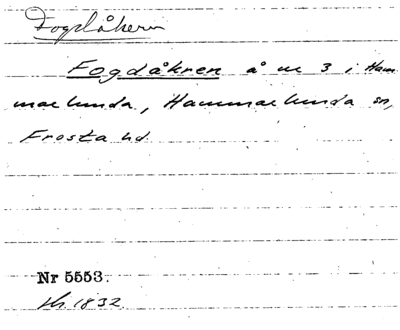 Fogdåkern
Fogdåkren å nr 3 i Ham
marlunda, Hammarlunda sn,
Frosta hd.
Nr 5553.
1832